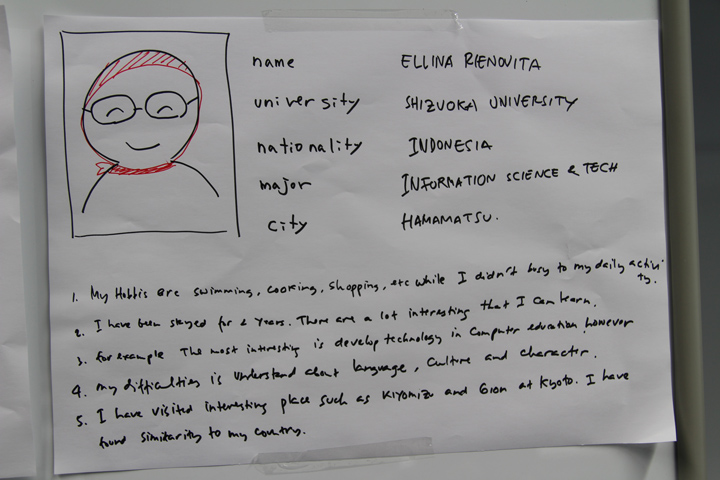 name ELLINA RIENOVITA
university SHIZUOKA UNIVERSITY
nationality INDONESIA
major INFORMATION SCIENCE & TECH
city HAMAMATSU.
1. My Hobbis are swimming, cooking, shopping, etc while I didn't busy to my daily activity.
2. I have been stayed for 2 years. There are a lot interesting that I can learn.
3. for example The most interesting is develop technology in Computer education however
4. my difficulties is understand about language, culture and character.
5. I have visited interesting place such as Kiyomizu and Gion at Kyoto. I have
found similarity to my country.